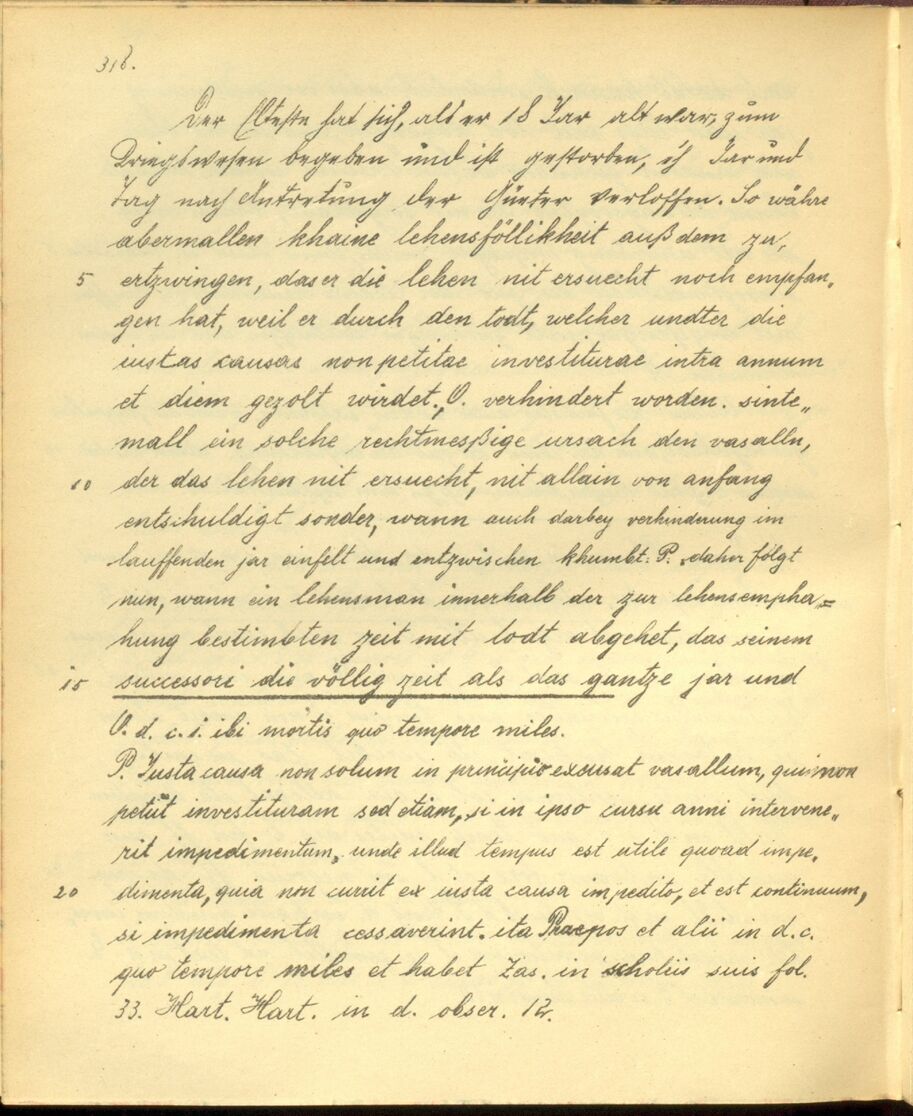 316.
Der Elteste hat sich, als er 18 Jar alt war, zum
Kriegswesen begeben und ist gestorben, eh Jar und
Tag nach Antretung der Güeter verloffen. So währe
abermallen khaine lehensföllikheit auß dem zu„
5 ertzwingen, das er die lehen nit ersuecht noch empfan„
gen hat, weil er durch den todt, welcher undter die
iustas causas non petitae investiturae intra annum
et diem gezolt wirdet, O. verhindert worden. sinte„
mall ein solche rechtmesßige ursach den vasalln,
10 der das lehen nit ersuecht, nit allain von anfang
entschuldigt sonder, wann auch darbey verhinderung im
lauffenden jar einfelt und entzwischen khumbt: P. daher fölgt
nun, wann ein lehensman innerhalb der zur lehensempha„=
hung bestimbten zeit mit todt abgehet, das seinem
15 successori die völlig zeit als das gantze jar und
O. d. c. i. ibi mortis quo tempore miles.
P. Iusta causa non solum in principio excusat vasallum, qui non
petiit investituram sed etiam, si in ipso cursu anni intervene„
rit impedimentum, unde illud tempus est utile quoad impe„
20 dimenta, quia non currit ex iusta causa impedito, et est continuum,
si impedimenta cessaverint. ita Praepos et alii in d. c.
quo tempore miles et habet Zas. in scholiis suis fol.
33. Hart. Hart. in d. obser. 12.